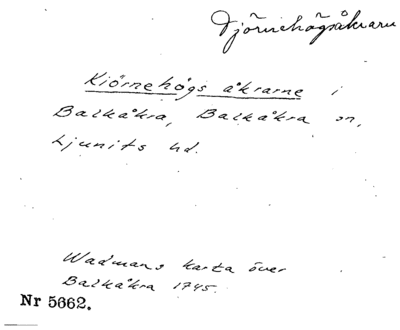 Djörnehögsåkrarne
Kiörnehögs åkrarne i
Balkåkra, Balkåkra sn,
Ljunits hd.
Wadmans karta över
Balkåkra 1745.
Nr 5662.